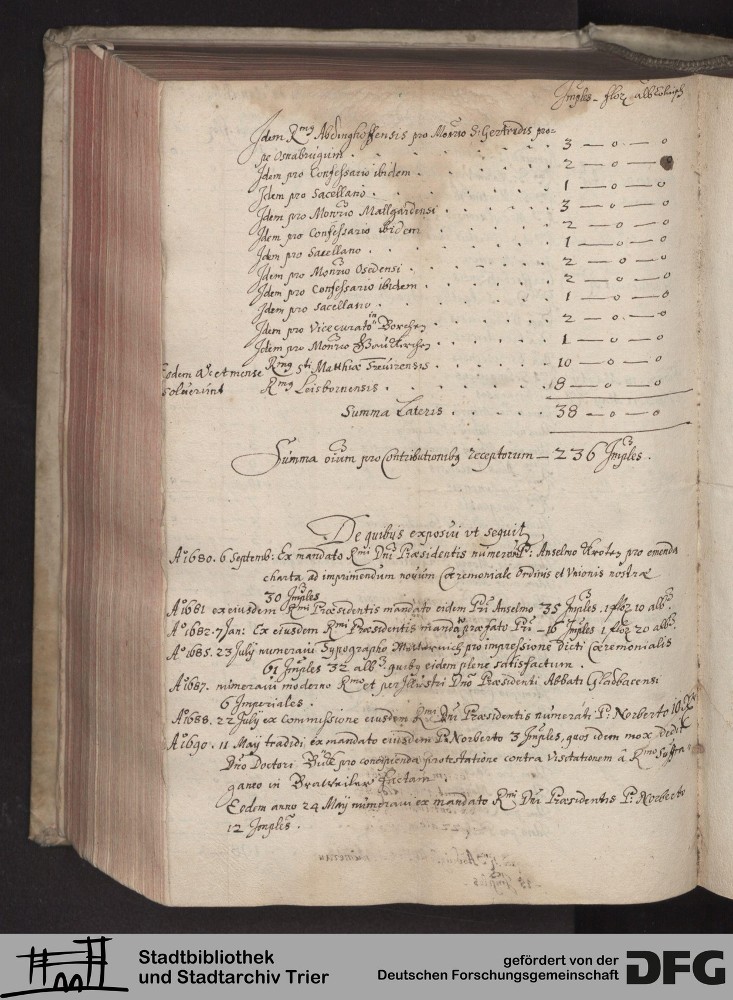 Imples - florz alb Colniens
Idem Rmus Abdinghoffensis pro Monrio S. Gertrudis pro=
pe Osnabrugum . . . . . 3 — o — o
Idem pro Confessario ibidem . . . . 2 — o — o
Idem pro Sacellano . . . . . 1 — o — o
Idem pro Monrio Mallgardensi . . . . 3 — o — o
Idem pro Confessario ibidem . . . . 2 — o — o
Idem pro Sacellano . . . . . 1 — o — o
Idem pro Monrio Osedensi . . . . 2 — o — o
Idem pro Confessario ibidem . . . . 2 — o — o
Idem pro sacellano . . . . . 1 — o — o
Idem pro Vicecurato in Borchen . . . . 2 — o — o
Idem pro Monrio . . . . 1 — o — o
Eodem Ao et mense Rmus sti Matthiæ Trevirensis . . . . 10 — o — o
solverunt Rmus Leisbornensis . . . . . 8 — o — o
Summa Lateris . . . . 38 — o — o
Summa oium pro Contributionibq receptorum — 236 Imples.
De quibus exposui ut sequit
Ao 1680. 6 Septemb: Ex mandato Rmi Dni Præsidentis numeravi P: Anselmo Kroten pro emenda
charta ad imprimendum novum Cæremoniale Ordinis et Unionis nostræ
30 Imples
Ao 1681 ex eiusdem Rmi Præsidentis mandato eidem Pri Anselmo 35 Imples. 1 flor 10 alb.
Ao 1682. 7 Jan: Ex eiusdem Rmi Præsidentis mandato præfato Pri — 16 Imples 1 flor 20 alb.
Ao 1685. 23 July numeravi Typographo Metternich pro impressione dicti Cæremonialis
61 Imples 32 alb. quibq eidem plene satisfactum.
Ao 1687. numeravi moderno Rmo et perIllustri Dno Præsidenti Abbati Gladbacensi
6 Imperiales.
Ao 1688. 22 July ex commissione eiusdem Rmi Dni Præsidentis numeravi P: Norberto 10
Ao 1690. 11 May tradidi ex mandato eiusdem P: Norberto 3 Imples, quos idem mox dedit
Dno Doctori pro concipienda protestatione contra Visitationem â Rmo Suffra
ganeo in Braweiler factam.
Eodem anno 24 May numeravi ex mandato Rmi Dni Præsidentis P: Norberto
12 Imples.
Stadtbibliothek
und Stadtarchiv Trier
gefördert von der
Deutschen Forschungsgemeinschaft
DFG